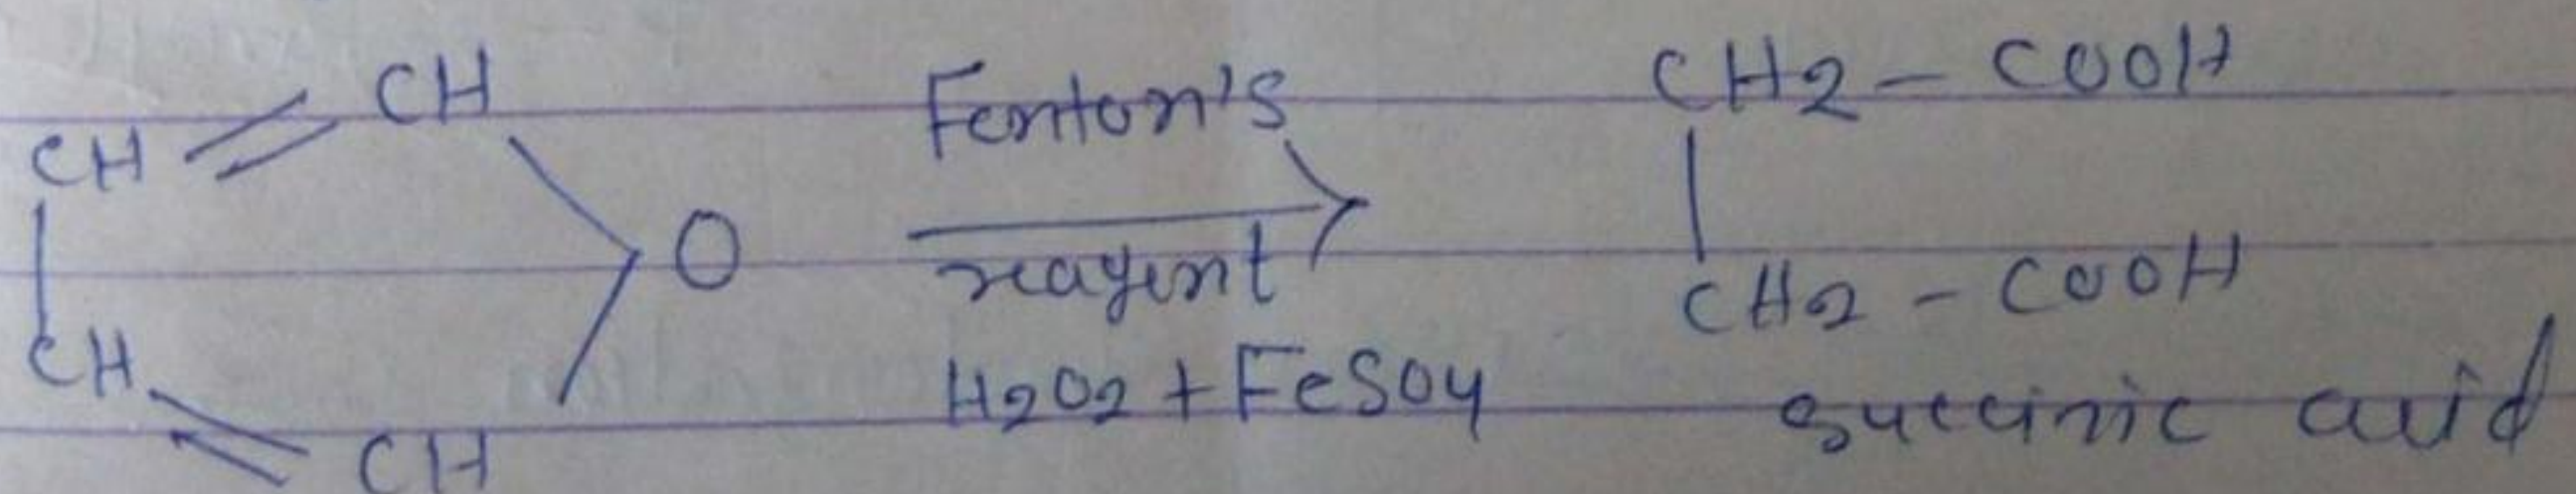 CH = CH
CH = CH
O
Fenton's
reagent
H2O2 + FeSO4
CH2 - COOH
CH2 - COOH
succinic acid